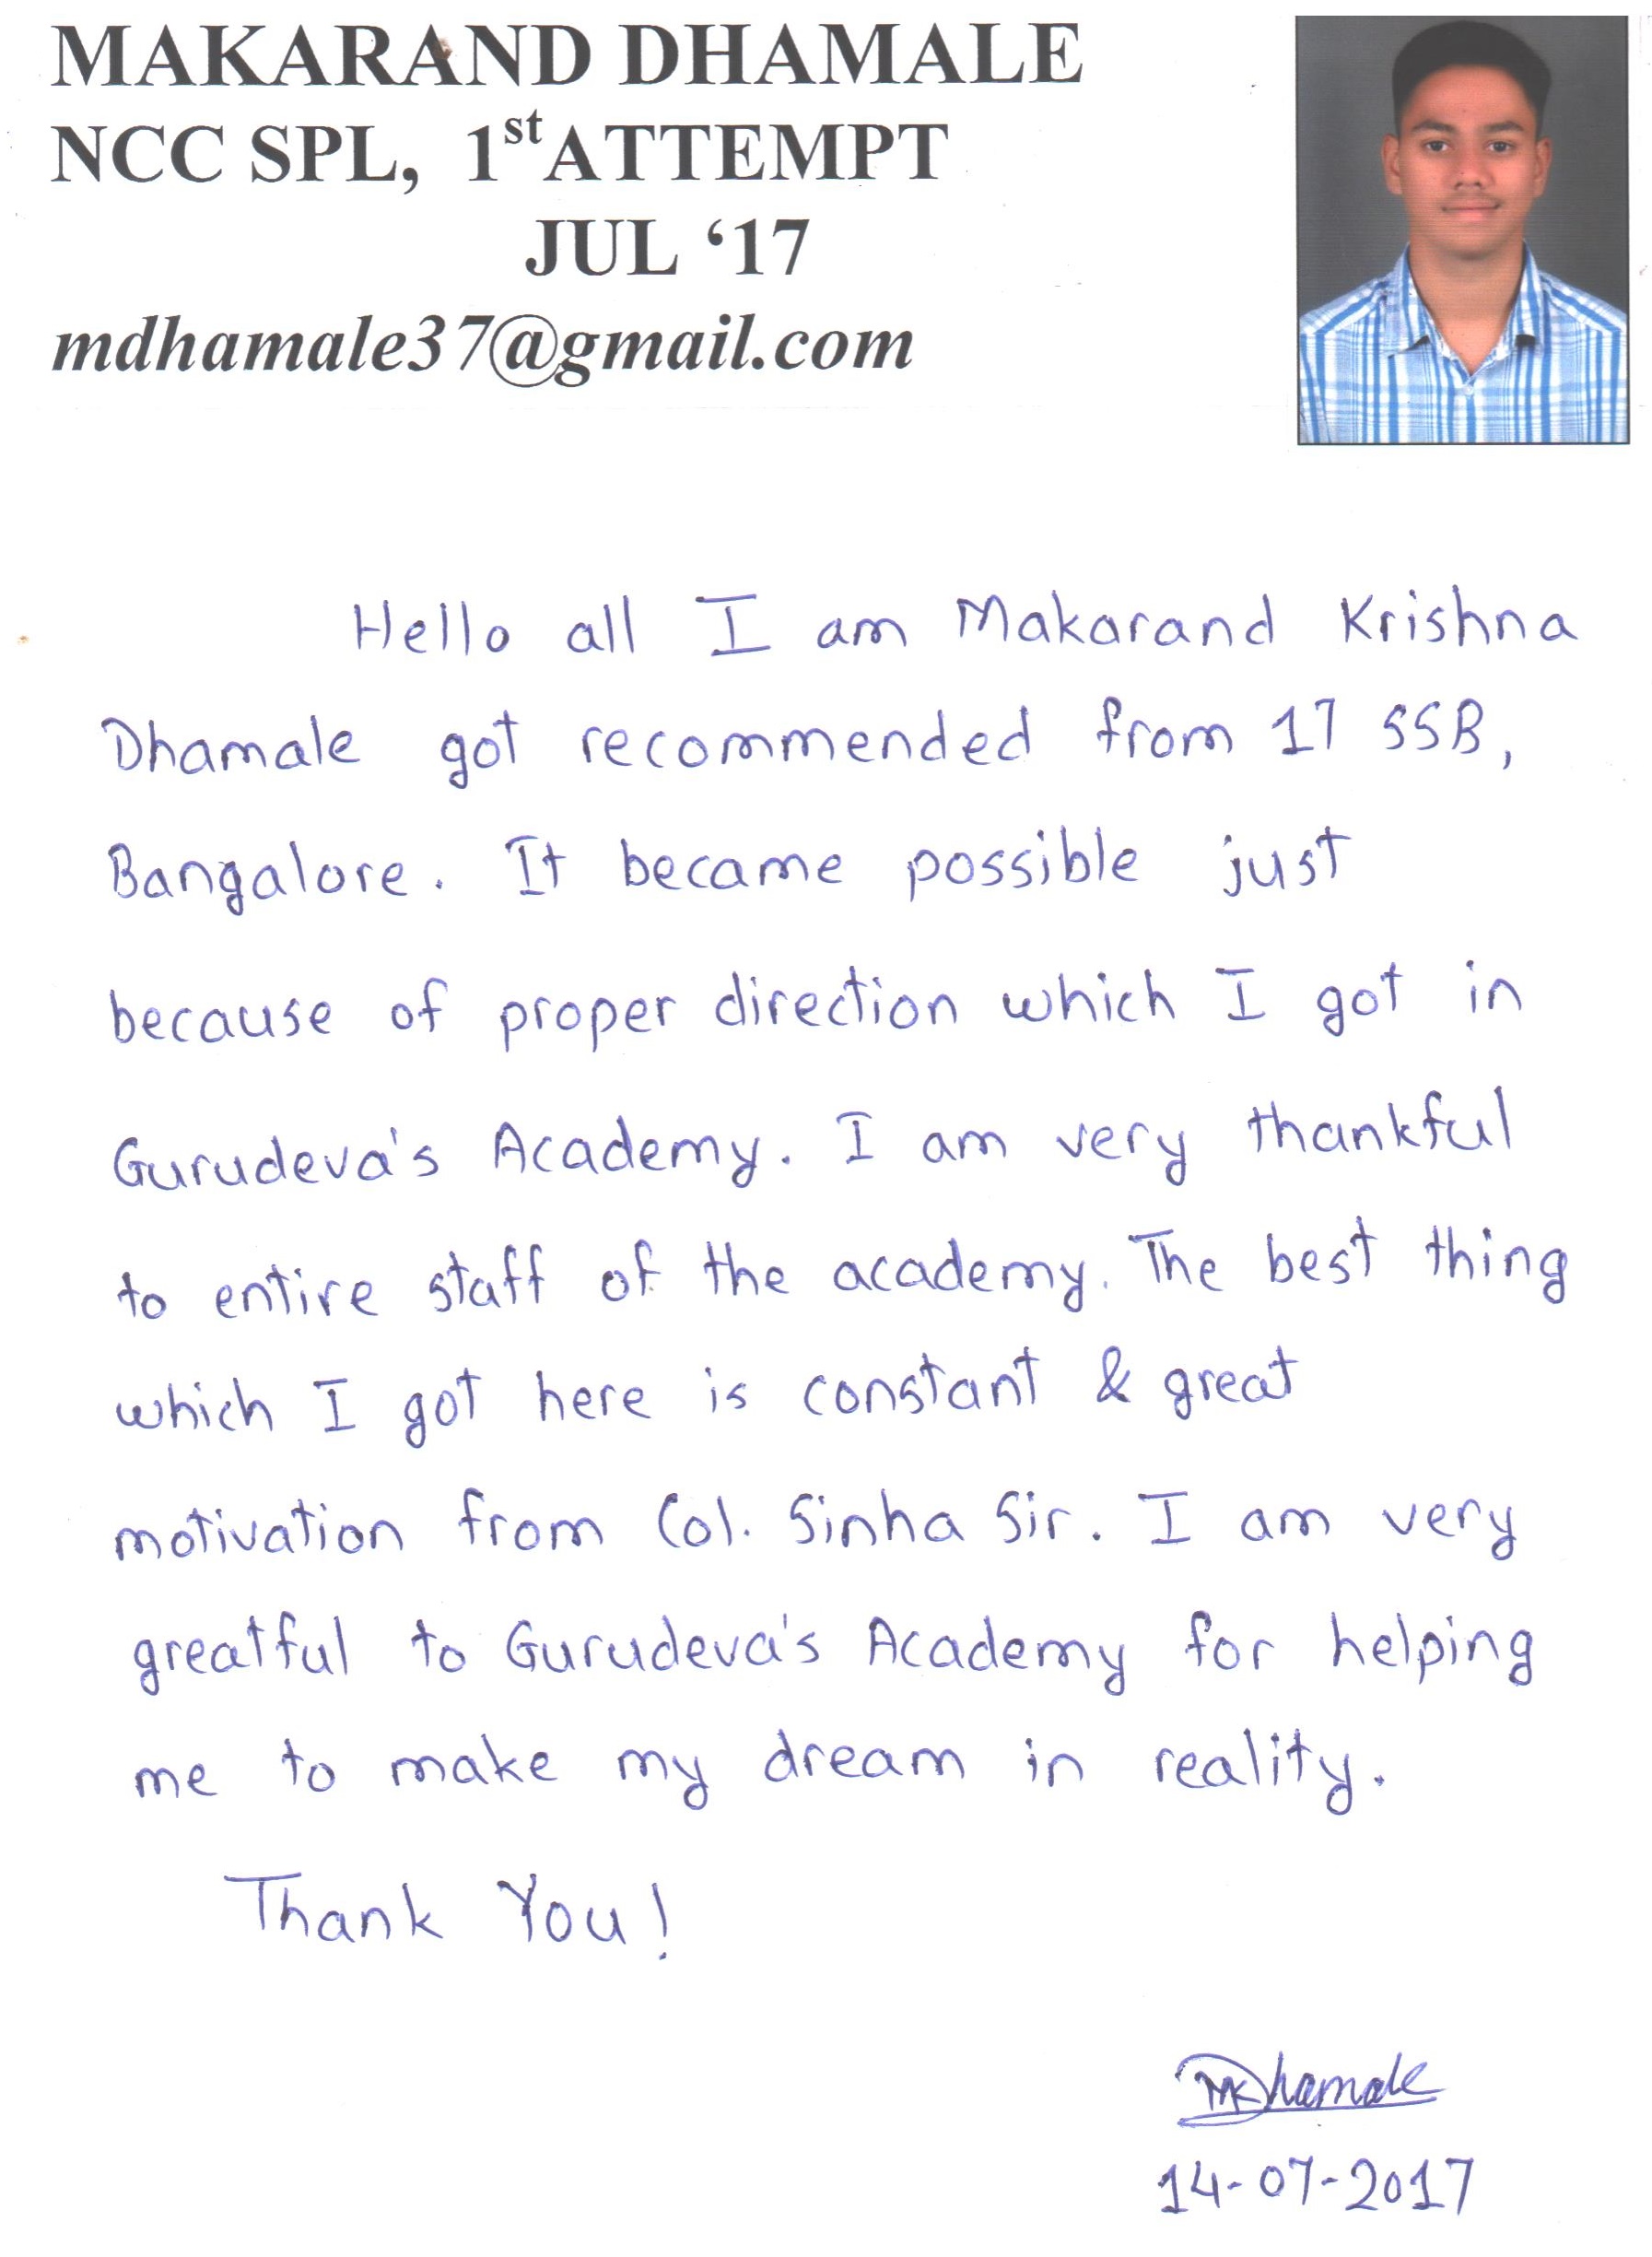 MAKARAND DHAMALE
NCC SPL, 1st ATTEMPT
JUL ‘17
mdhamale37@gmail.com
Hello all I am Makarand Krishna
Dhamale got recommended from 17 SSB,
Bangalore. It became possible just
because of proper direction which I got in
Gurudeva's Academy. I am very thankful
to entire staff of the academy. The best thing
which I got here is constant & great
motivation from Col. Sinha Sir. I am very
greatful to Gurudeva's Academy for helping
me to make my dream in reality.
Thank You!
MKDhamale
14-07-2017